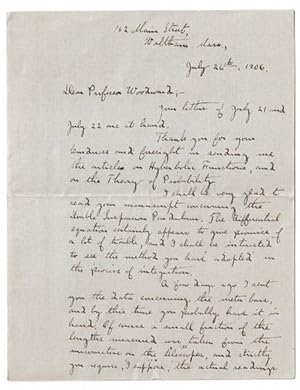 162 Main Street,
Waltham Mass.,
July 26th, 1906.
Dear Professor Woodward;-
Your letters of July 21 and
July 22 are at hand.
Thank you for your
kindness and foresight in sending me
the articles on Hyperbolic Functions, and
on the Theory of Probability.
I shall be very glad to
read your manuscript concerning the
Double Suspension Pendulum. The differential
equation certainly appears to give promise of
a lot of trouble, and I shall be interested
to see the method you have adopted in
the process of integration.
A few days ago I sent
you the data concerning the metre bars,
and by this time you probably have it in
hand. Of course a small fraction of the
lengths measured was taken from the
micrometer on the telescope, and strictly
you require, I suppose, the actual readings